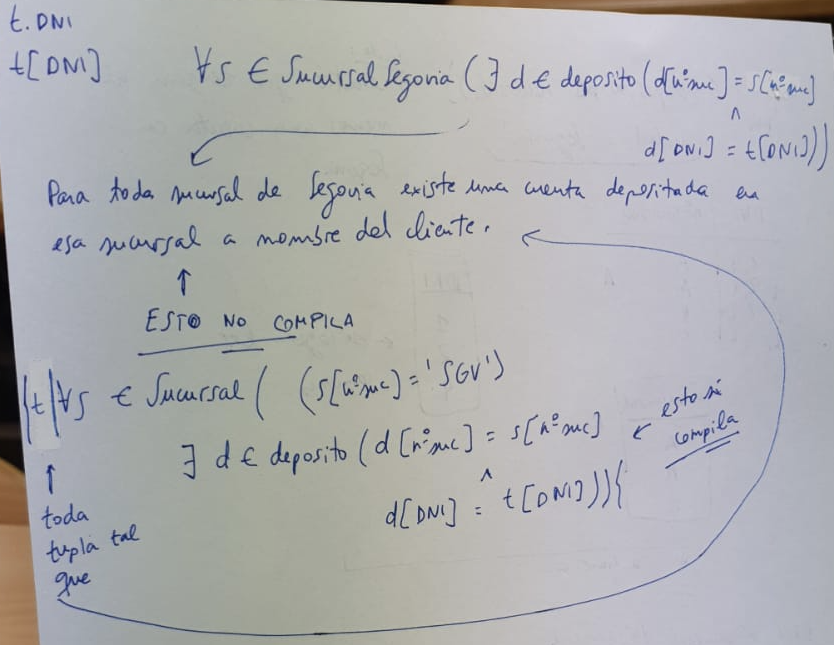 t.DNI
t[DNI]
∀s ∈ Sucursal Segovia (∃ d ∈ deposito (d[nºsuc] = s[nºsuc]
∧
d[DNI] = t[DNI]))
Para toda sucursal de Segovia existe una cuenta depositada en
esa sucursal a nombre del cliente.
ESTO NO COMPILA
{t|∀s ∈ Sucursal ( (s[nºsuc] = 'SGV')
∃ d ∈ deposito (d[nºsuc] = s[nºsuc]
∧
d[DNI] = t[DNI])){
esto si
compila
toda
tupla tal
que